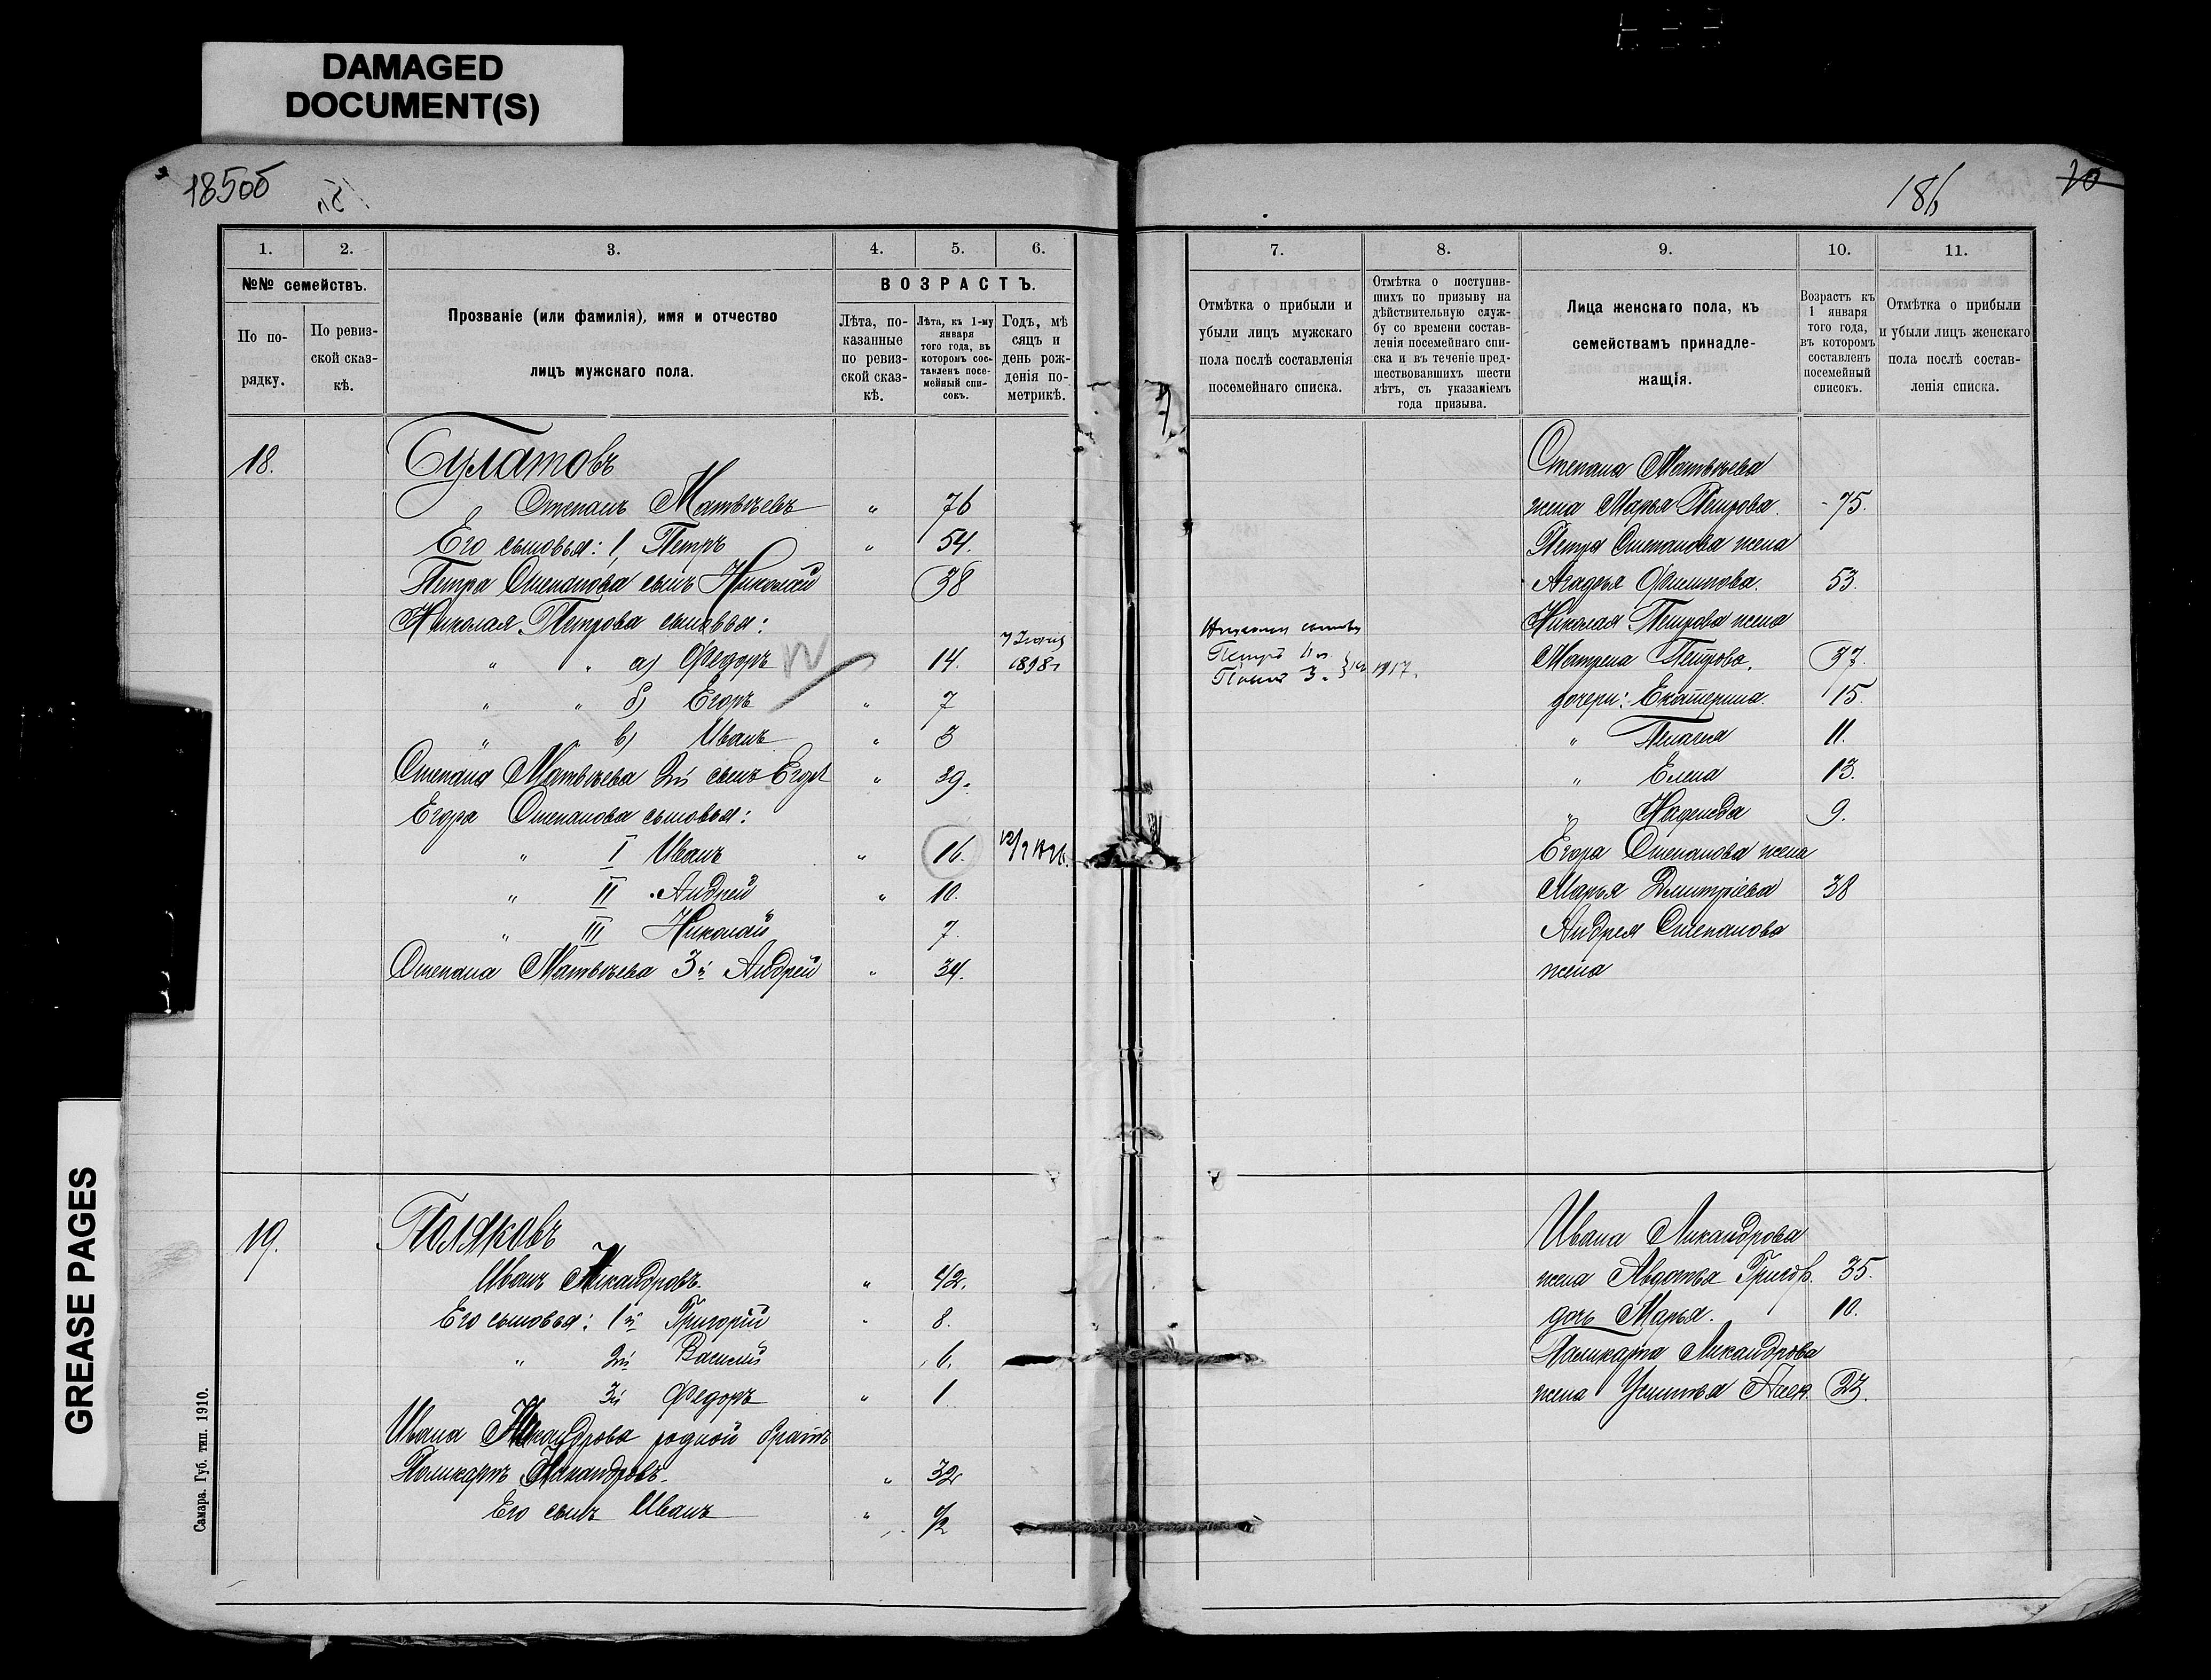 DAMAGED
DOCUMENT(S)
GREASE PAGES
185об
1.
2.
3.
4.
5.
6.
№№ семействъ.
По по-
рядку.
По ревиз-
ской сказ-
кѣ.
Прозваніе (или фамилія), имя и отчество
лицъ мужскаго пола.
ВОЗРАСТЪ.
Лѣта, по-
казанные
по ревиз-
ской сказ-
кѣ.
Лѣта, къ 1-му
января
того года, въ
которомъ сос-
тавленъ посе-
мейный спи-
сокъ.
Годъ, мѣ
сяцъ и
день рож-
денія по-
метрикѣ.
18.
Булатовъ
Степанъ Матвѣевъ " 76
Его сыновья: 1, Петръ " 54.
Петра Степанова сынъ Николай 38
Николая Петрова сыновья:
" " а) Федоръ 14. 1898г
" " б) Егоръ " 7
" " в) Иванъ " 3
Степана Матвѣева 2й сынъ Егоръ " 39.
Егора Степанова сыновья:
" I Иванъ " 16.
" II Андрей " 10.
" III Николай 7.
Степана Матвѣева 3й Андрей " 34.
19.
Поляковъ
Иванъ Никандровъ. " 42.
Его сыновья: 1й Григорій " 8.
" 2й Василій 6.
3й Федоръ " 1
Ивана Никандрова родной братъ
Поликарпъ Никандровъ. " 32
Его сынъ Иванъ " 1/2
Самара. Губ. тип. 1910.
186
70
7.
8.
9.
10.
11.
Отмѣтка о прибыли и
убыли лицъ мужскаго
пола послѣ составленія
посемейнаго списка.
Отмѣтка о поступив-
шихъ по призыву на
дѣйствительную служ-
бу со времени состав-
ленія посемейнаго спи-
ска и въ теченіе пред-
шествовавшихъ шести
лѣтъ, съ указаніемъ
года призыва.
Лица женскаго пола, къ
семействамъ принадле-
жащія.
Возрастъ къ
1 января
того года,
въ которомъ
составленъ
посемейный
списокъ.
Отмѣтка о прибыли
и убыли лицъ женскаго
пола послѣ состав-
ленія списка.
Петръ
1917.
Степана Матвѣева
жена Марья Петрова. 75.
Петра Степанова жена
Агафья Филипова. 53.
Николая Петрова жена
Матрена Петрова. 37.
дочери: Екатерина. 15.
" Пелагея 11.
" Елена 13.
" Надежда 9.
Егора Степанова жена
Марья Дмитріева 38
Андрея Степанова
жена
Ивана Никандрова
жена Авдотья Григор. 35.
дочь Марья. 10.
Поликарпа Никандрова
жена Устинья 23.